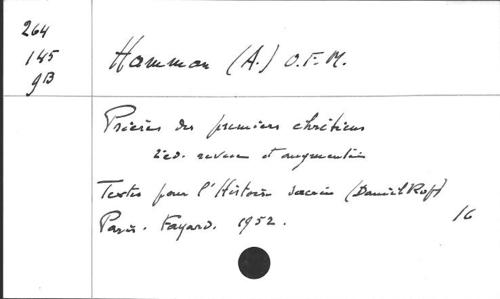 264
145
9B
Hamman (A.) O.F.M.
Prières des premiers chrétiens
2 éd. revue et augmentée
Textes pour l'Histoire sacrée (Daniel Rops)
Paris. Fayard. 1952.
16